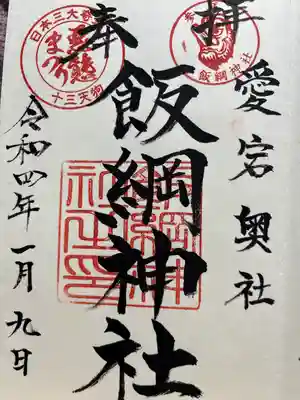 奉拝
愛宕奥社
飯綱神社
令和四年一月九日
日本三大
まつり
十三天狗
飯綱神社